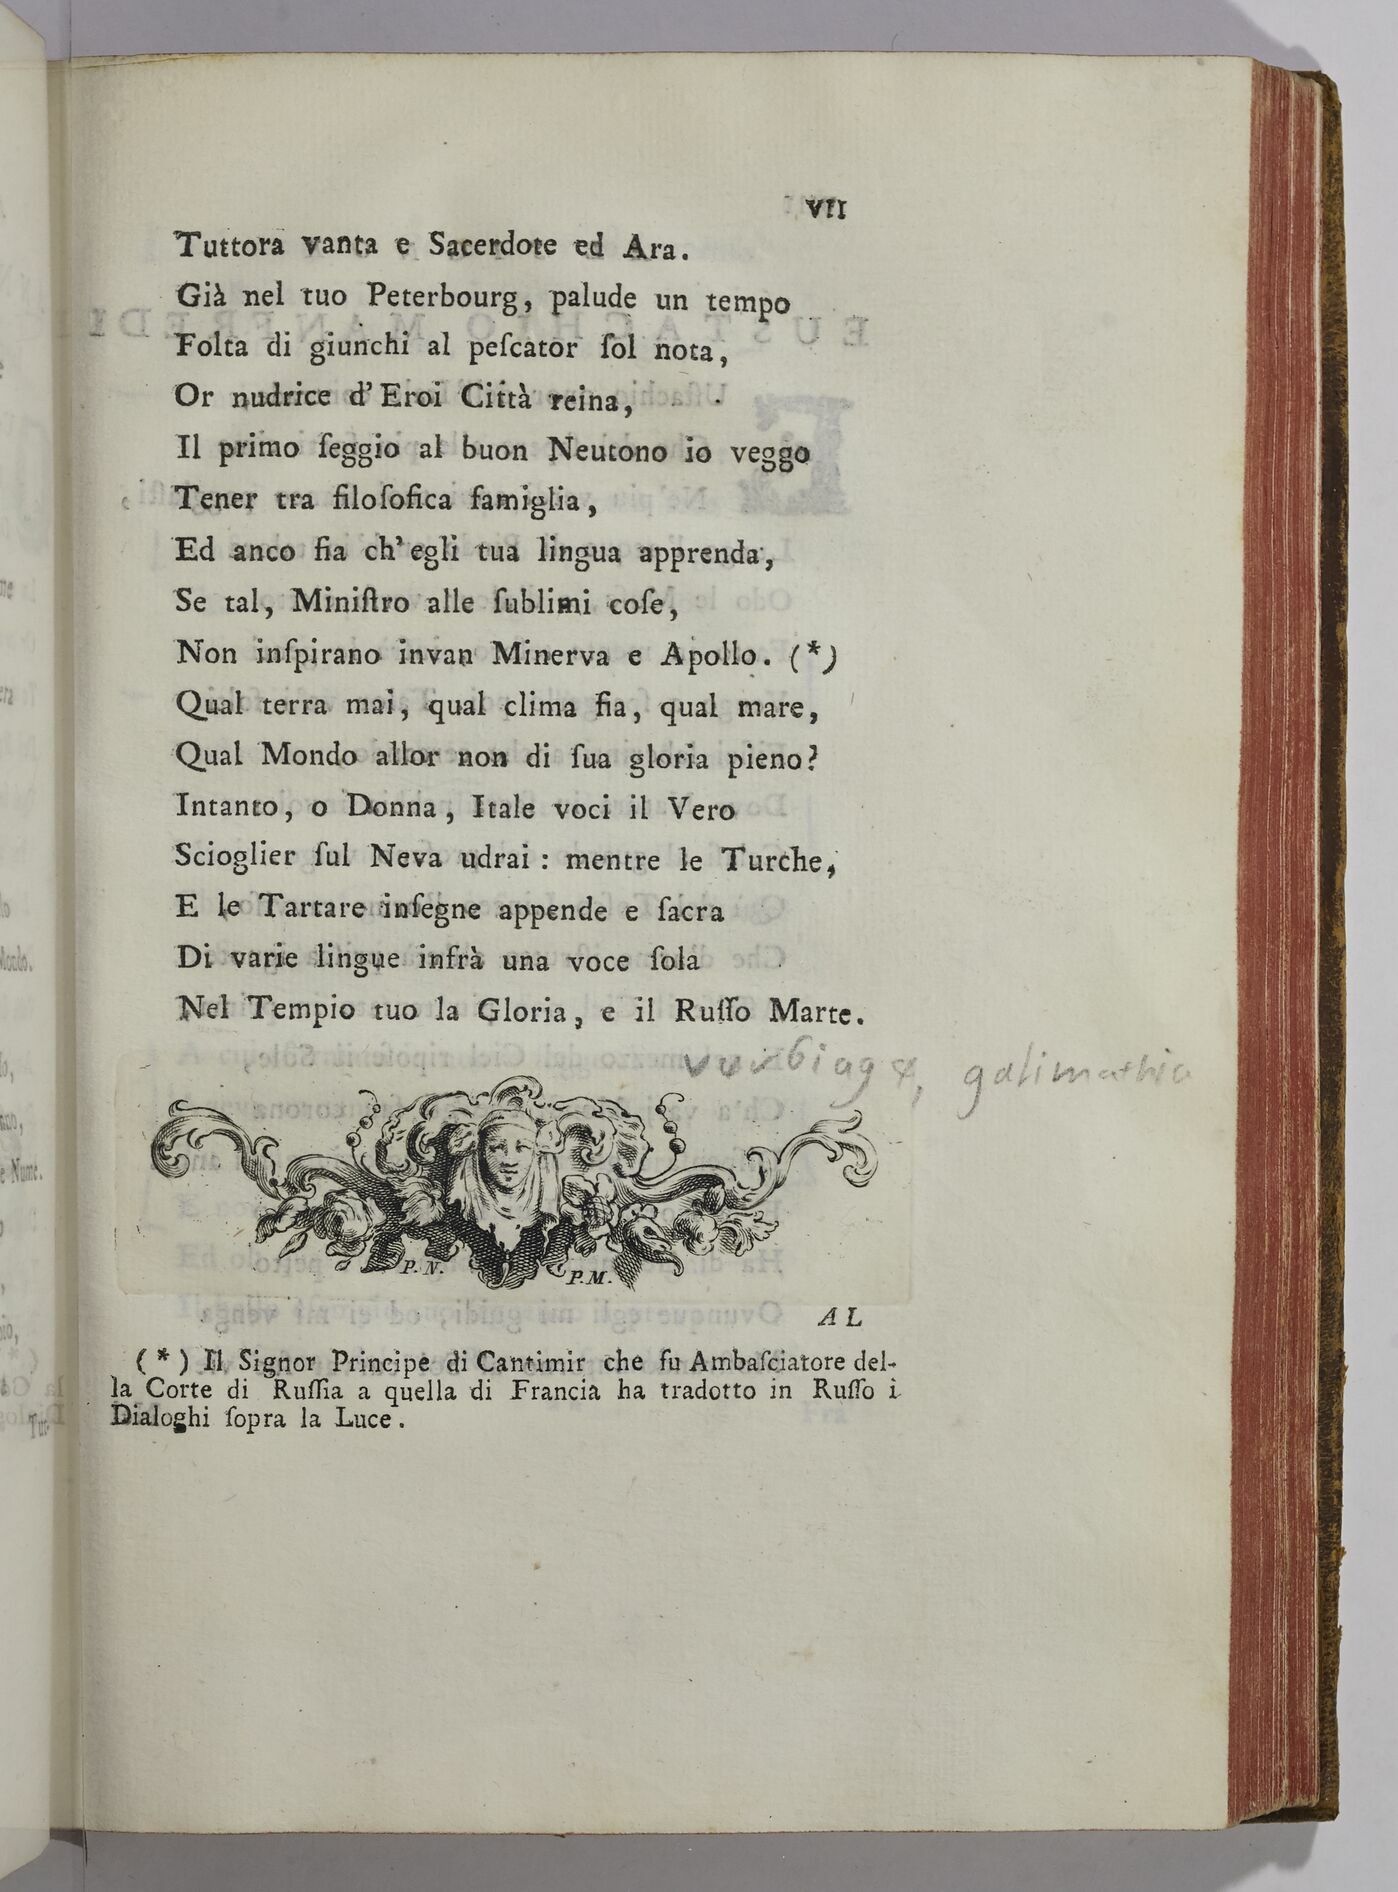 VII
Tuttora vanta e Sacerdote ed Ara.
Già nel tuo Peterbourg, palude un tempo
Folta di giunchi al peſcator ſol nota,
Or nudrice d' Eroi Città reina,
Il primo ſeggio al buon Neutono io veggo
Tener tra filoſofica famiglia,
Ed anco fia ch' egli tua lingua apprenda,
Se tal, Miniſtro alle ſublimi coſe,
Non inſpirano invan Minerva e Apollo. (*)
Qual terra mai, qual clima fia, qual mare,
Qual Mondo allor non di ſua gloria pieno?
Intanto, o Donna, Itale voci il Vero
Scioglier ſul Neva udrai: mentre le Turche,
E le Tartare inſegne appende e ſacra
Di varie lingue infrà una voce ſola
Nel Tempio tuo la Gloria, e il Ruſſo Marte.
verbiage, galimathia
P. N. P. M.
AL
(*) Il Signor Principe di Cantimir che fu Ambaſciatore del-
la Corte di Ruſſia a quella di Francia ha tradotto in Ruſſo i
Dialoghi ſopra la Luce.